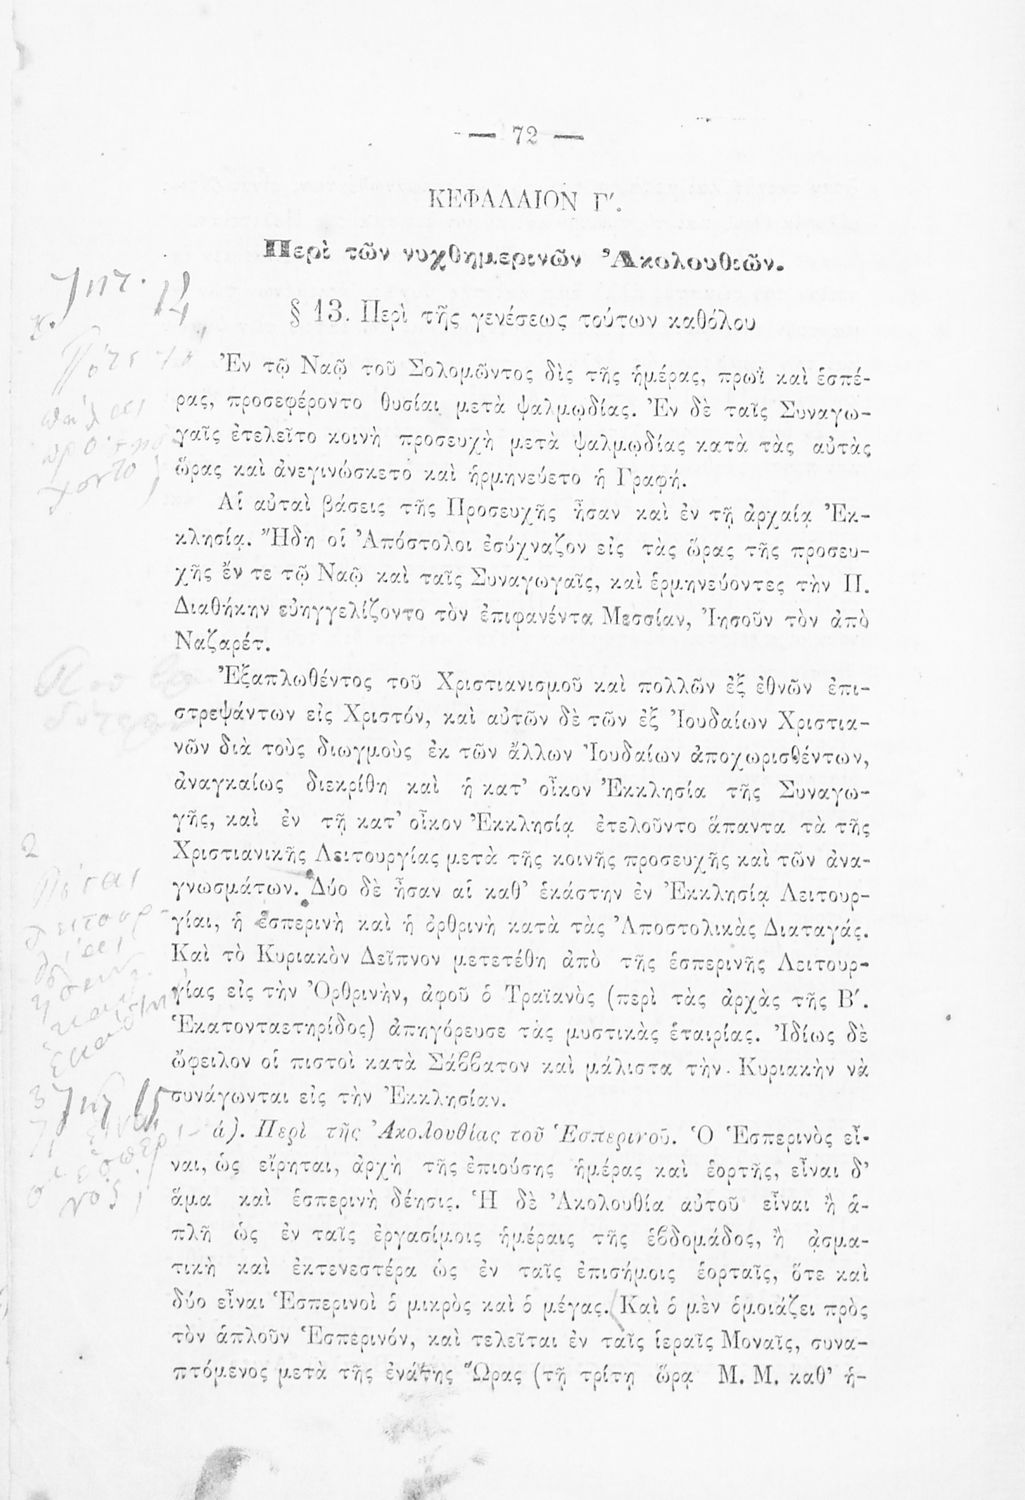 — 72 —
ΚΕΦΑΛΑΙΟΝ Γ΄.
Περὶ τῶν νυχθημερινῶν Ἀκολουθιῶν.
§ 13. Περὶ τῆς γενέσεως τούτων καθόλου
Ἐν τῷ Ναῷ τοῦ Σολομῶντος δὶς τῆς ἡμέρας, πρωῒ καὶ ἑσπέ-
ρας, προσεφέροντο θυσίαι μετὰ ψαλμῳδίας. Ἐν δὲ ταῖς Συναγω-
γαῖς ἐτελεῖτο κοινὴ προσευχὴ μετὰ ψαλμῳδίας κατὰ τὰς αὐτὰς
ὥρας καὶ ἀνεγινώσκετο καὶ ἡρμηνεύετο ἡ Γραφή.
Αἱ αὐταὶ βάσεις τῆς Προσευχῆς ἦσαν καὶ ἐν τῇ ἀρχαίᾳ Ἐκ-
κλησίᾳ. Ἤδη οἱ Ἀπόστολοι ἐσύχναζον εἰς τὰς ὥρας τῆς προσευ-
χῆς ἔν τε τῷ Ναῷ καὶ ταῖς Συναγωγαῖς, καὶ ἑρμηνεύοντες τὴν Π.
Διαθήκην εὐηγγελίζοντο τὸν ἐπιφανέντα Μεσσίαν, Ἰησοῦν τὸν ἀπὸ
Ναζαρέτ.
Ἐξαπλωθέντος τοῦ Χριστιανισμοῦ καὶ πολλῶν ἐξ ἐθνῶν ἐπι-
στρεψάντων εἰς Χριστόν, καὶ αὐτῶν δὲ τῶν ἐξ Ἰουδαίων Χριστια-
νῶν διὰ τοὺς διωγμοὺς ἐκ τῶν ἄλλων Ἰουδαίων ἀποχωρισθέντων,
ἀναγκαίως διεκρίθη καὶ ἡ κατ' οἶκον Ἐκκλησία τῆς Συναγω-
γῆς, καὶ ἐν τῇ κατ' οἶκον Ἐκκλησίᾳ ἐτελοῦντο ἅπαντα τὰ τῆς
Χριστιανικῆς Λειτουργίας μετὰ τῆς κοινῆς προσευχῆς καὶ τῶν ἀνα-
γνωσμάτων. Δύο δὲ ἦσαν αἱ καθ' ἑκάστην ἐν Ἐκκλησίᾳ Λειτουρ-
γίαι, ἡ ἑσπερινὴ καὶ ἡ ὀρθρινὴ κατὰ τὰς Ἀποστολικὰς Διαταγάς.
Καὶ τὸ Κυριακὸν Δεῖπνον μετετέθη ἀπὸ τῆς ἑσπερινῆς Λειτουρ-
γίας εἰς τὴν Ὀρθρινήν, ἀφοῦ ὁ Τραϊανὸς (περὶ τὰς ἀρχὰς τῆς Β΄.
Ἑκατονταετηρίδος) ἀπηγόρευσε τὰς μυστικὰς ἑταιρίας. Ἰδίως δὲ
ὤφειλον οἱ πιστοὶ κατὰ Σάββατον καὶ μάλιστα τὴν Κυριακὴν νὰ
συνάγωνται εἰς τὴν Ἐκκλησίαν.
ά). Περὶ τῆς Ἀκολουθίας τοῦ Ἑσπερινοῦ. Ὁ Ἑσπερινὸς εἶ-
ναι, ὡς εἴρηται, ἀρχὴ τῆς ἐπιούσης ἡμέρας καὶ ἑορτῆς, εἶναι δ'
ἅμα καὶ ἑσπερινὴ δέησις. Ἡ δὲ Ἀκολουθία αὐτοῦ εἶναι ἢ ἁ-
πλῆ ὡς ἐν ταῖς ἐργασίμοις ἡμέραις τῆς ἑβδομάδος, ἢ ᾀσμα-
τικὴ καὶ ἐκτενεστέρα ὡς ἐν ταῖς ἐπισήμοις ἑορταῖς, ὅτε καὶ
δύο εἶναι Ἑσπερινοὶ ὁ μικρὸς καὶ ὁ μέγας. Καὶ ὁ μὲν ὁμοιάζει πρὸς
τὸν ἁπλοῦν Ἑσπερινόν, καὶ τελεῖται ἐν ταῖς ἱεραῖς Μοναῖς, συνα-
πτόμενος μετὰ τῆς ἐνάτης Ὥρας (τῇ τρίτῃ ὥρᾳ Μ. Μ. καθ' ἡ-